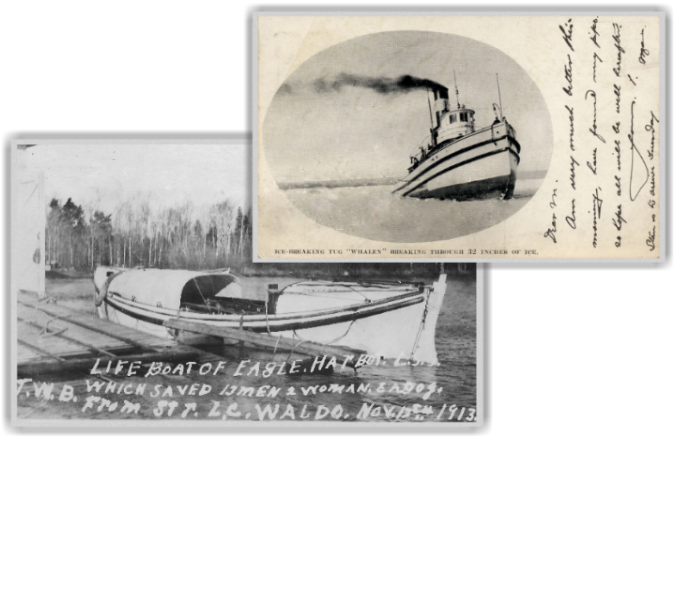 ICE-BREAKING TUG "WHALEN" BREAKING THROUGH 32 INCHES OF ICE.
Dear M.
Am very much better this
morning, have found my pipe.
so hope all will be well hereafter
Yours.
LIFE BOAT OF EAGLE. HARBOR. L.S.
T.W.B. WHICH SAVED 13 MEN 2 WOMAN. & A DOG.
From STR. L.C. WALDO. NOV. 1913.